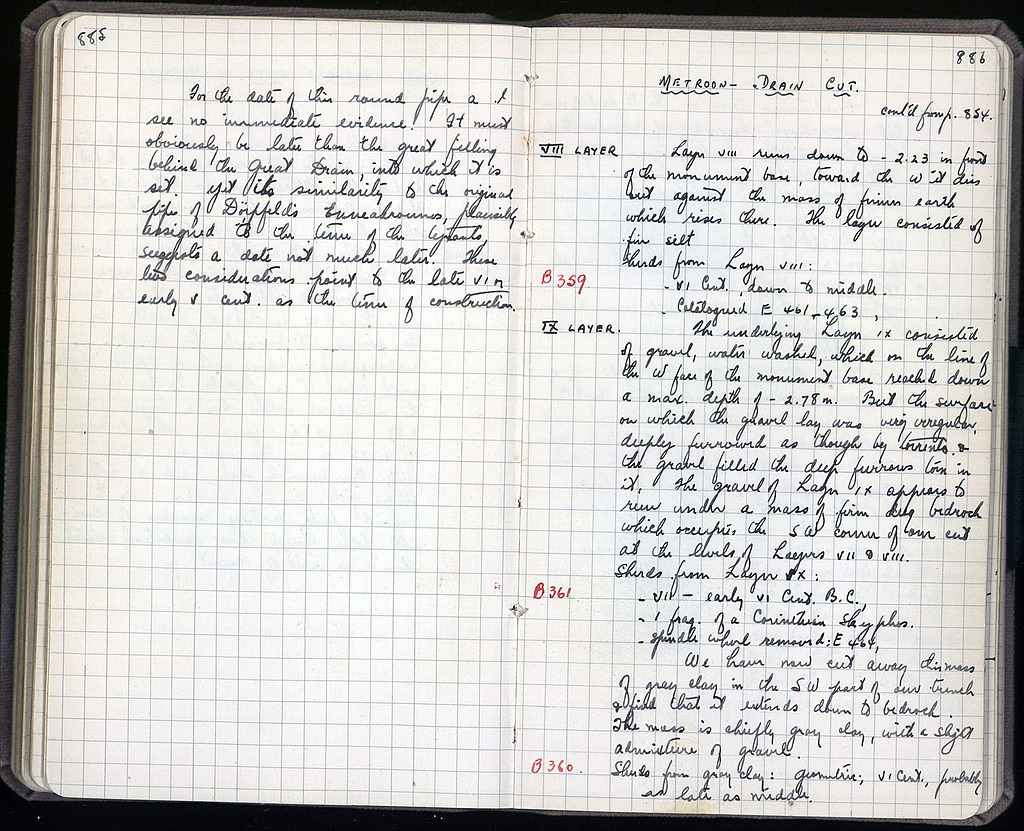 885
For the date of this round pipe
see no immediate evidence. It must
obviously be later than the great filling
behind the Great Drain, into which it is
set. Yet its similarity to the original
pipe of Dörpfeld's Enneakrounos, plausibly
assigned to the time of the tyrants,
suggests a date not much later. These
two considerations point to the late VI or
early V cent. as the time of construction.
886
METROON - DRAIN CUT.
cont'd from p. 854.
VIII LAYER
Layer VIII runs down to - 2.23 in front
of the monument base, toward the W it dies
out against the mass of firmer earth
which rises there. The layer consisted of
fine silt
Sherds from Layer VIII:
B 359
- VI Cent., down to middle.
- Catalogued E 461-463,
IX LAYER.
The underlying Layer IX consisted
of gravel, water washed, which on the line of
the W face of the monument base reached down
a max. depth of - 2.78 m. But the surface
on which the gravel lay was very irregular,
deeply furrowed as though by torrents &
the gravel filled the deep furrows torn in
it. The gravel of Layer IX appears to
run under a mass of firm bedrock
which occupies the SW corner of our cut
at the levels of Layers VII & VIII.
Sherds from Layer IX:
B 361
- VII - early VI Cent. B.C.,
- 1 frag. of a Corinthian Skyphos.
- Spindle whorl removed: E 464,
We have now cut away this mass
of gray clay in the SW part of our trench
& find that it extends down to bedrock.
The mass is chiefly gray clay, with a slight
admixture of gravel.
B 360
Sherds from gray clay: geometric; VI Cent., probably
as late as middle.